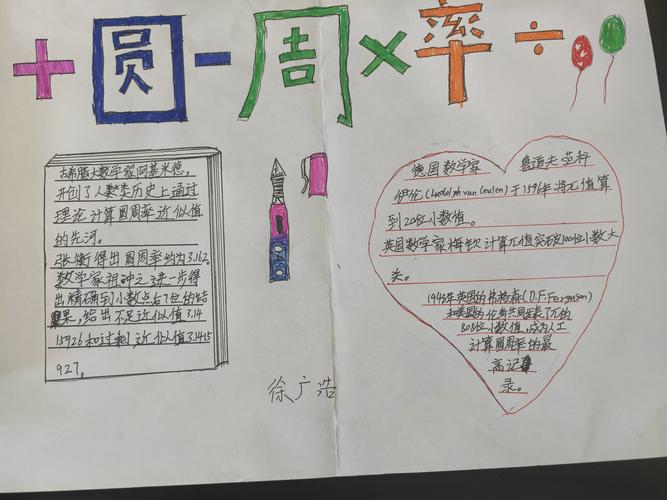 +圆-周×率÷
古希腊大数学家阿基米德，
开创了人类历史上通过
理论计算圆周率近似值
的先河。
张衡得出圆周率约为3.162。
数学家祖冲之进一步得
出精确到小数点后7位的结
果，给出不足近似值3.14
15926和过剩近似值3.1415
927。
徐广浩
德国数学家 鲁道夫范科
伊伦(Ludolph van Ceulen)于1596年将π值算
到20位小数值。
英国数学家梅钦计算π值突破100位小数大
关。
1948年英国的弗格森(D.F.Ferguson)
和美国的伦奇共同发表了π的
808位小数值，成为人工
计算圆周率的最
高记
录。